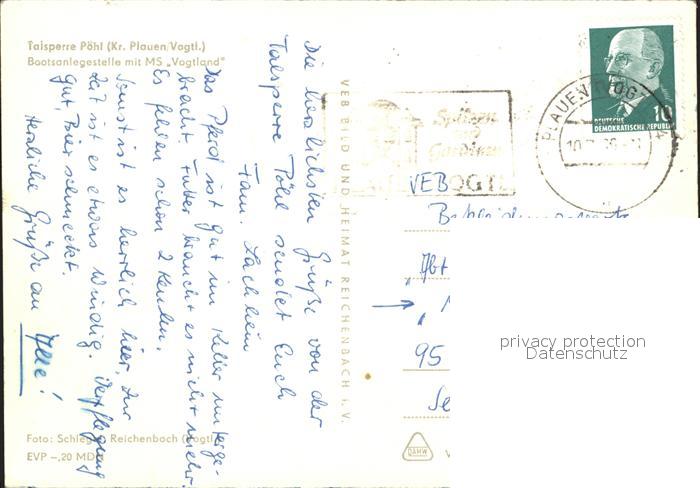 Talsperre Pöhl (Kr. Plauen/Vogtl.)
Bootsanlegestelle mit MS „Vogtland"
Die herzlichsten Grüße von der
Talsperre Pöhl sendet Euch
Fam. Lachhein
Das Pferd ist gut im Keller unterge-
bracht. Futter braucht es nicht mehr.
Es fehlen schon 2 Keulen.
Sonst ist es herrlich hier, zur
Zeit ist es etwas windig. Verpflegung
gut, Bier schmeckt.
Herzliche Grüße an Alle!
Foto: Schlegel, Reichenbach (Vogtl.)
EVP –,20 MDN
VEB BILD UND HEIMAT REICHENBACH i. V.
Spitzen
und
Gardinen
PLAUEN (VOGTL
10
DEUTSCHE
DEMOKRATISCHE REPUBLIK
10
VEB
Abt
95
DAMW
V
privacy protection
Datenschutz